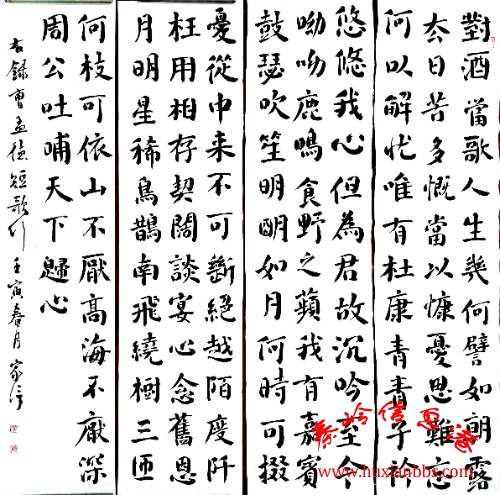 對酒當歌人生幾何譬如朝露
去日苦多慨當以慷憂思難忘
何以解忧唯有杜康青青子衿
悠悠我心但為君故沉吟至今
呦呦鹿鳴食野之蘋我有嘉賓
鼓瑟吹笙明明如月何時可掇
憂從中来不可斷絕越陌度阡
枉用相存契闊談宴心念舊恩
月明星稀烏鵲南飛繞樹三匝
何枝可依山不厭高海不厭深
周公吐哺天下歸心
右録曹孟德短歌行壬寅春月家信
秦岭信息港
www.huxianbbs.com